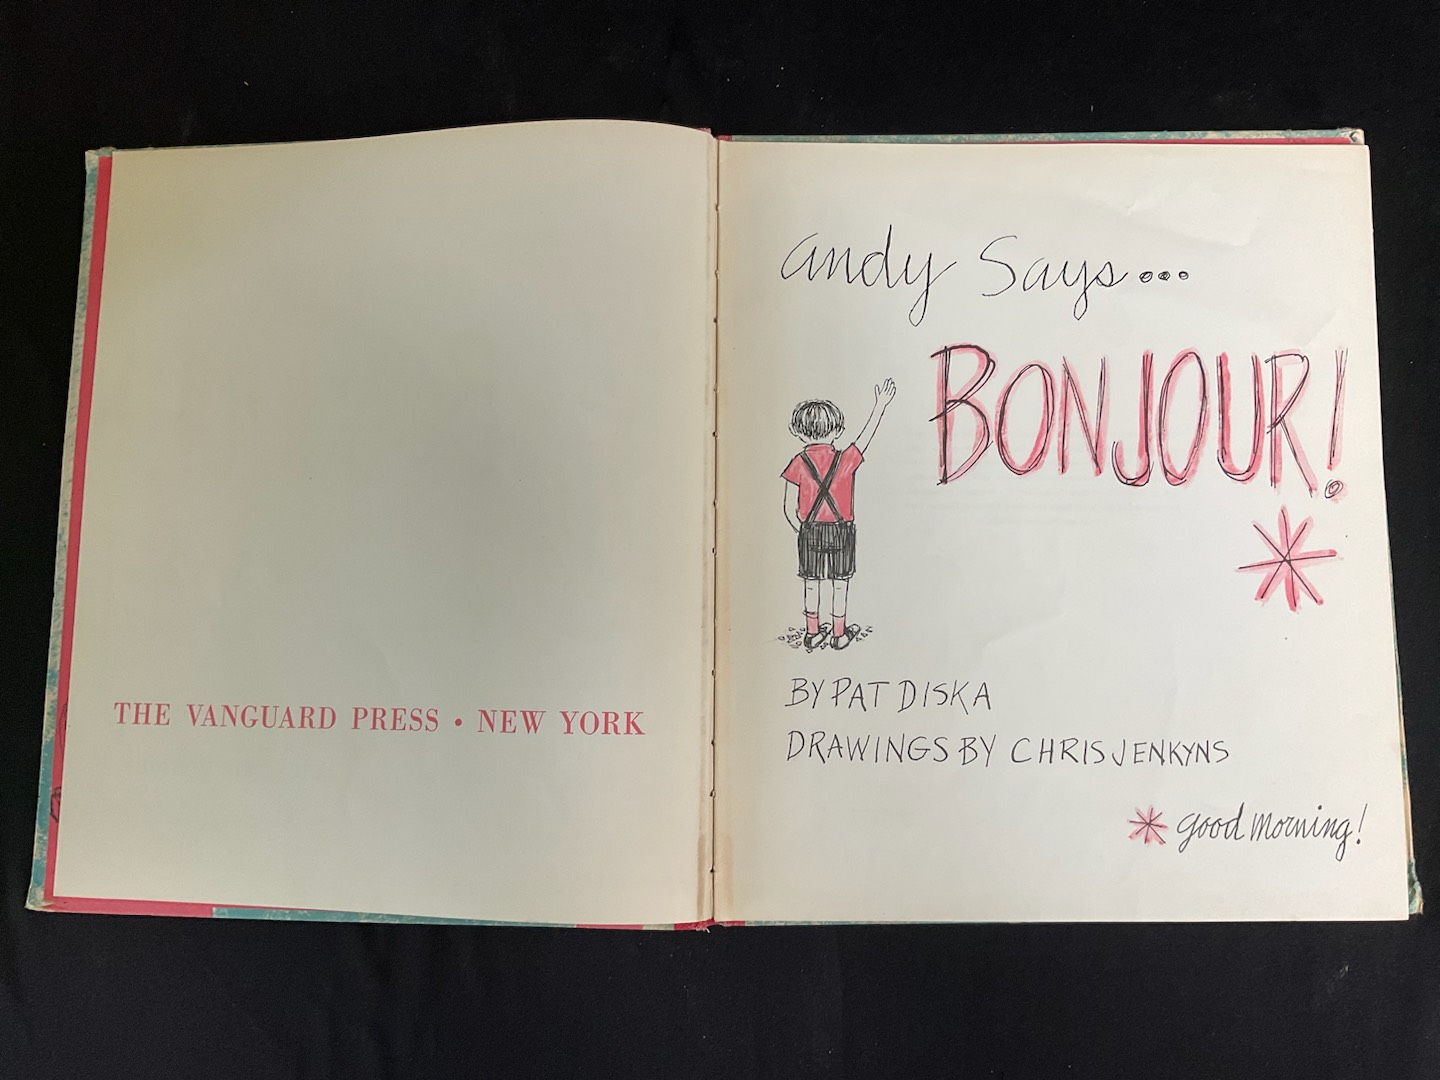 THE VANGUARD PRESS • NEW YORK
andy Says...
BONJOUR!
*
BY PAT DISKA
DRAWINGS BY CHRIS JENKYNS
* good morning!